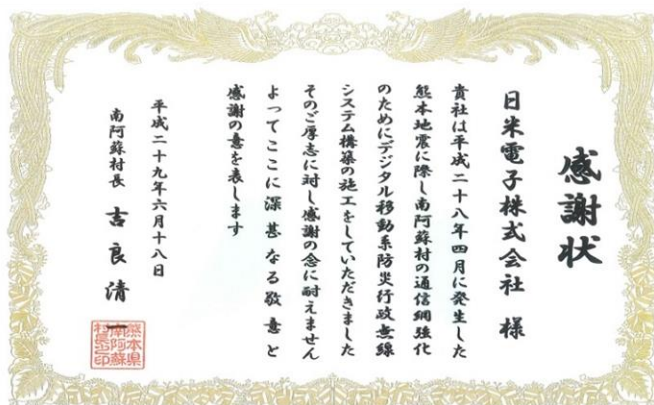 感謝状
日米電子株式会社 様
貴社は平成二十八年四月に発生した
熊本地震に際し南阿蘇村の通信網強化
のためにデジタル移動系防災行政無線
システム構築の施工をしていただきました
そのご厚志に対し感謝の念に耐えません
よってここに深甚なる敬意と
感謝の意を表します
平成二十九年六月十八日
南阿蘇村長 吉良清一
熊本県
南阿蘇
村長印